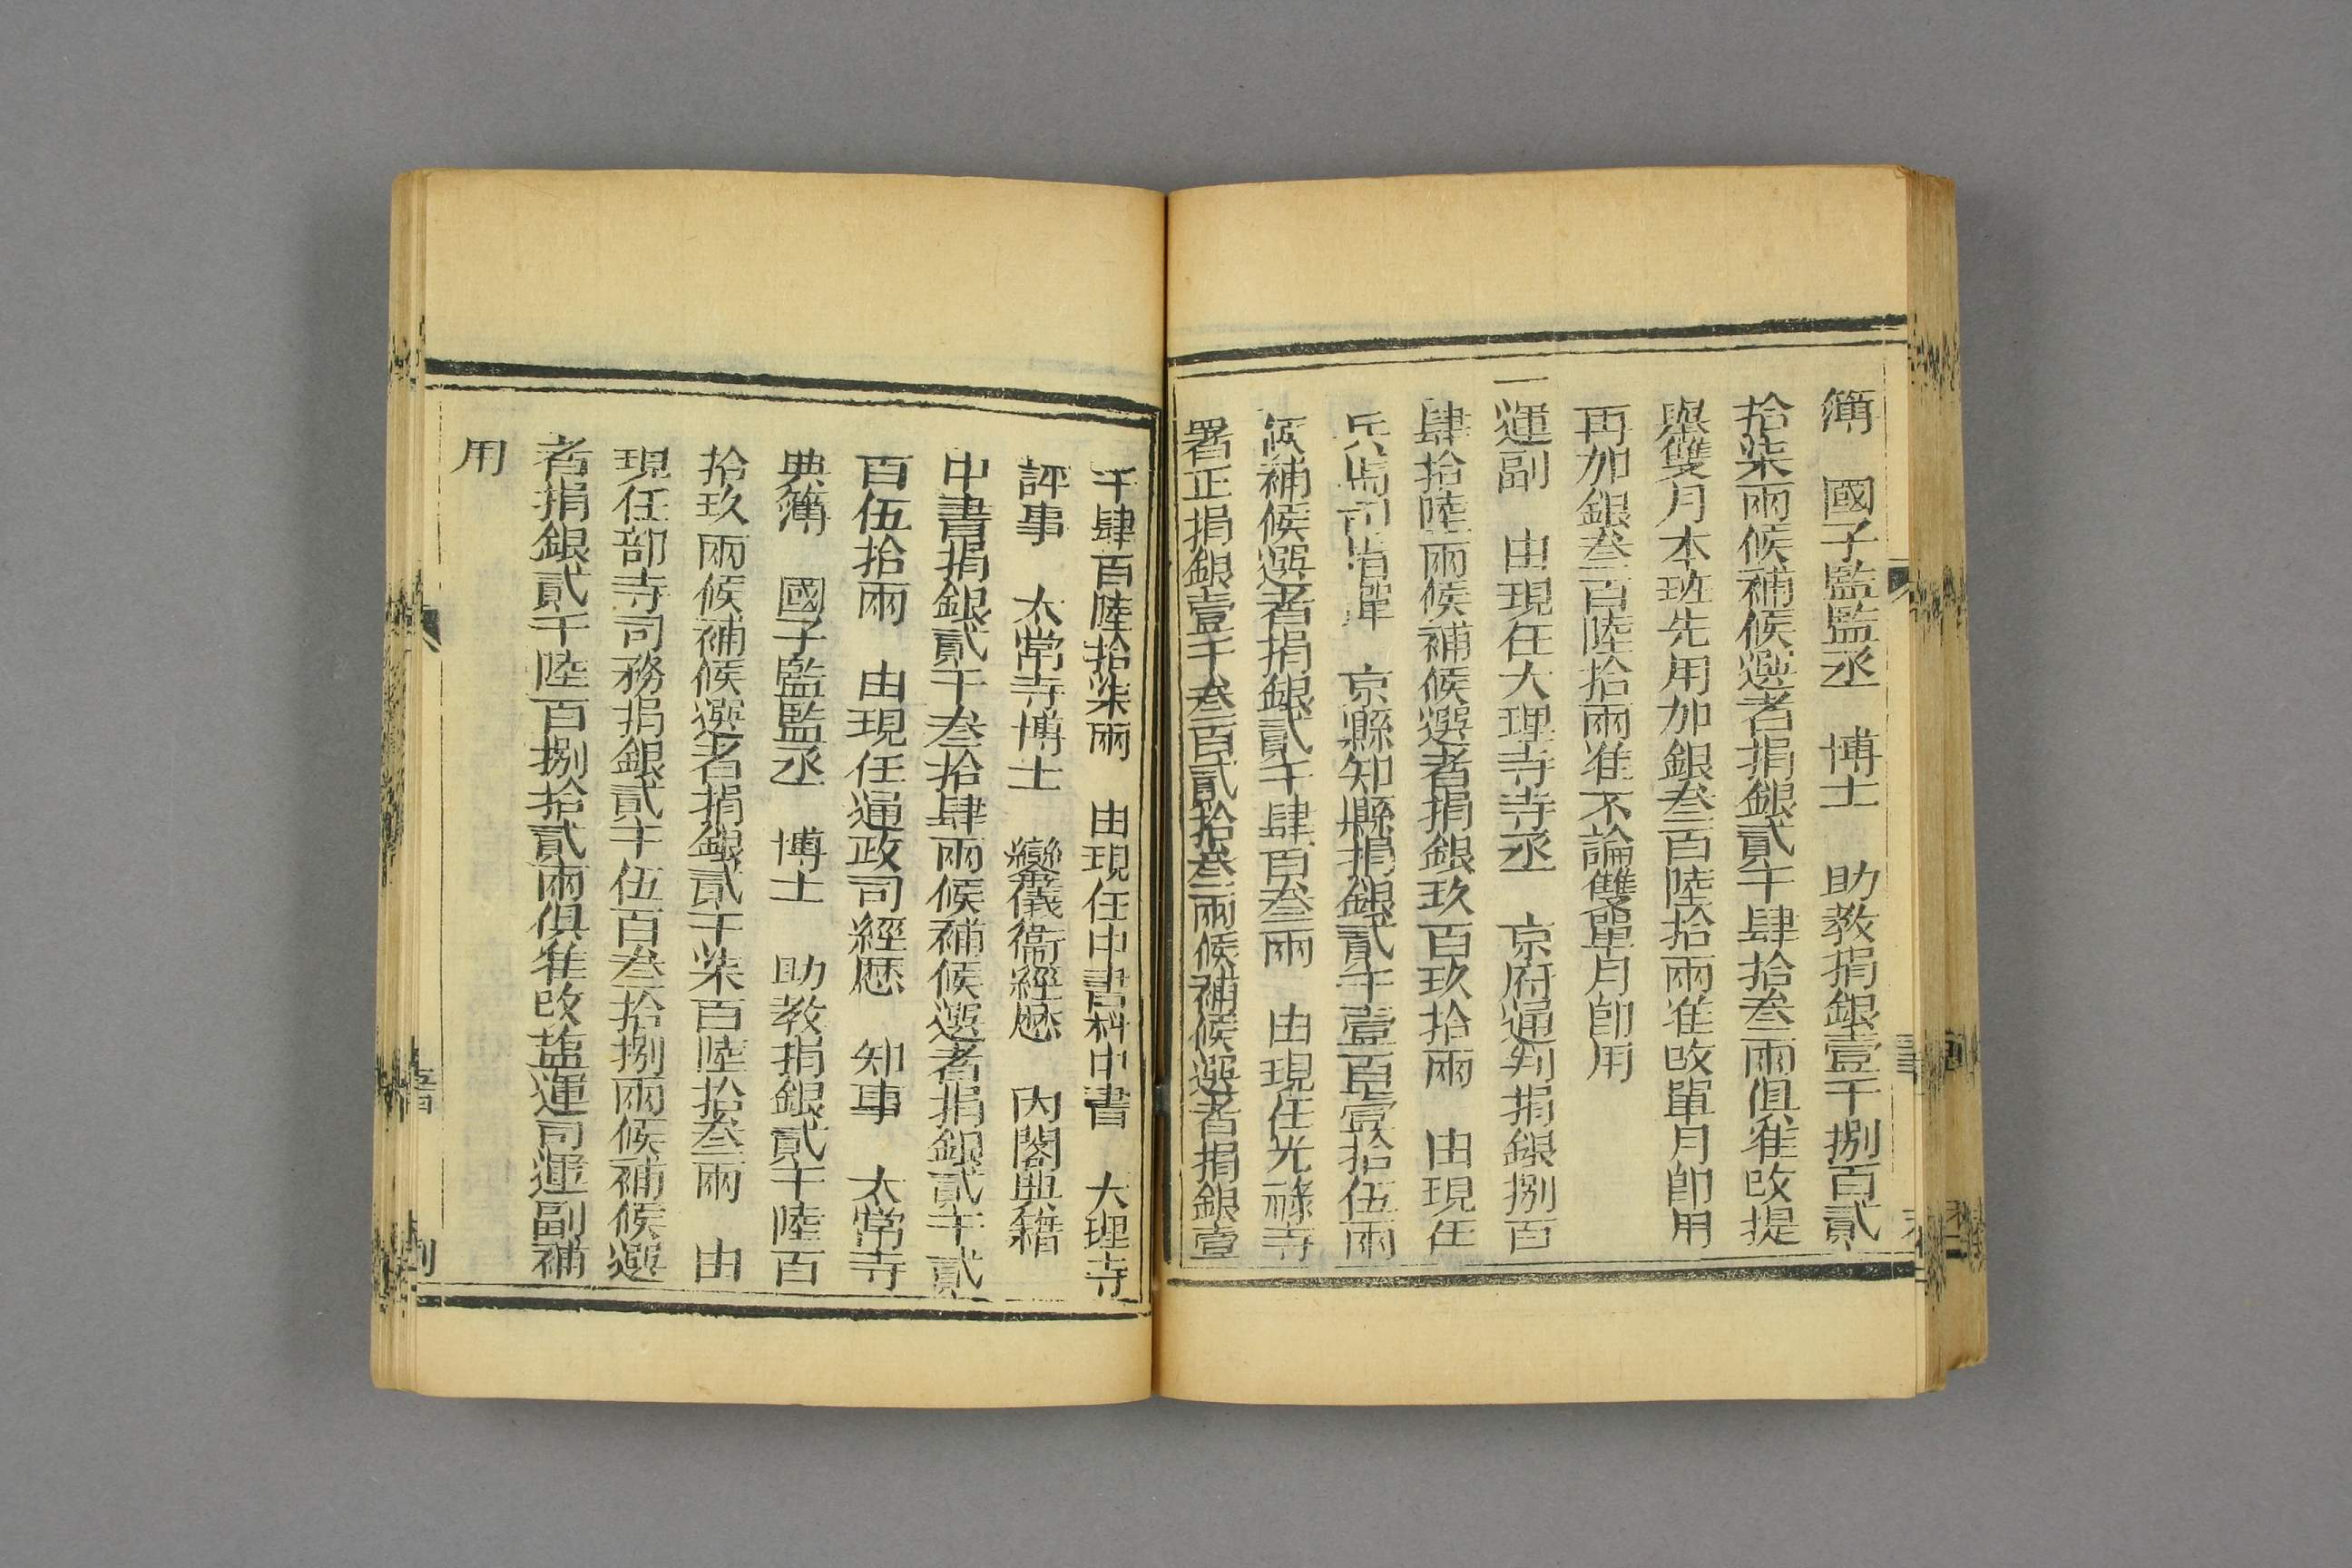 簿　國子監監丞　博士　助教捐銀壹千捌百貳
拾柒兩候補候選者捐銀貳千肆拾叁兩俱准改提
舉雙月本班先用加銀叁百陸拾兩准改單月卽用
再加銀叁百陸拾兩准不論雙單月卽用
一運副　由現任大理寺寺丞　京府通判捐銀捌百
肆拾陸兩候補候選者捐銀玖百玖拾兩　由現任
兵馬司指揮　京縣知縣捐銀貳千壹百壹拾伍兩
候補候選者捐銀貳千肆百叁兩　由現任光祿寺
署正捐銀壹千叁百貳拾叁兩候補候選者捐銀壹
千肆百陸拾柒兩　由現任中書科中書　大理寺
評事　太常寺博士　鑾儀衞經歷　內閣典籍
中書捐銀貳千叁拾肆兩候補候選者捐銀貳千貳
百伍拾兩　由現任通政司經歷　知事　太常寺
典簿　國子監監丞　博士　助教捐銀貳千陸百
拾玖兩候補候選者捐銀貳千柒百陸拾叁兩　由
現任部寺司務捐銀貳千伍百叁拾捌兩候補候選
者捐銀貳千陸百捌拾貳兩俱准改鹽運司運副補
用